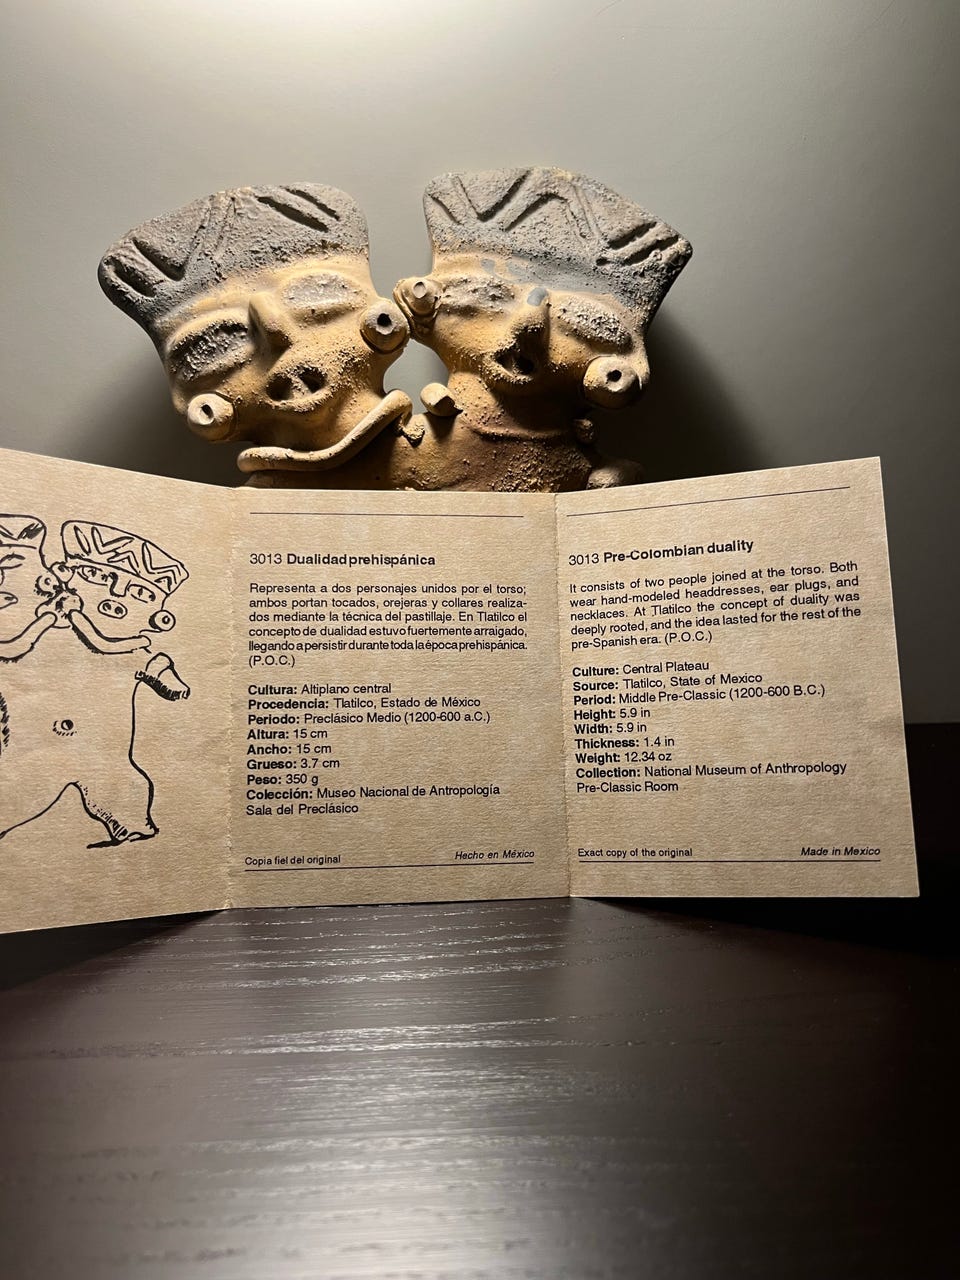 3013 Dualidad prehispánica
Representa a dos personajes unidos por el torso;
ambos portan tocados, orejeras y collares realiza-
dos mediante la técnica del pastillaje. En Tlatilco el
concepto de dualidad estuvo fuertemente arraigado,
llegando a persistir durante toda la época prehispánica.
(P.O.C.)
Cultura: Altiplano central
Procedencia: Tlatilco, Estado de México
Periodo: Preclásico Medio (1200-600 a.C.)
Altura: 15 cm
Ancho: 15 cm
Grueso: 3.7 cm
Peso: 350 g
Colección: Museo Nacional de Antropología
Sala del Preclásico
Copia fiel del original
Hecho en México
3013 Pre-Colombian duality
It consists of two people joined at the torso. Both
wear hand-modeled headdresses, ear plugs, and
necklaces. At Tlatilco the concept of duality was
deeply rooted, and the idea lasted for the rest of the
pre-Spanish era. (P.O.C.)
Culture: Central Plateau
Source: Tlatilco, State of Mexico
Period: Middle Pre-Classic (1200-600 B.C.)
Height: 5.9 in
Width: 5.9 in
Thickness: 1.4 in
Weight: 12.34 oz
Collection: National Museum of Anthropology
Pre-Classic Room
Exact copy of the original
Made in Mexico